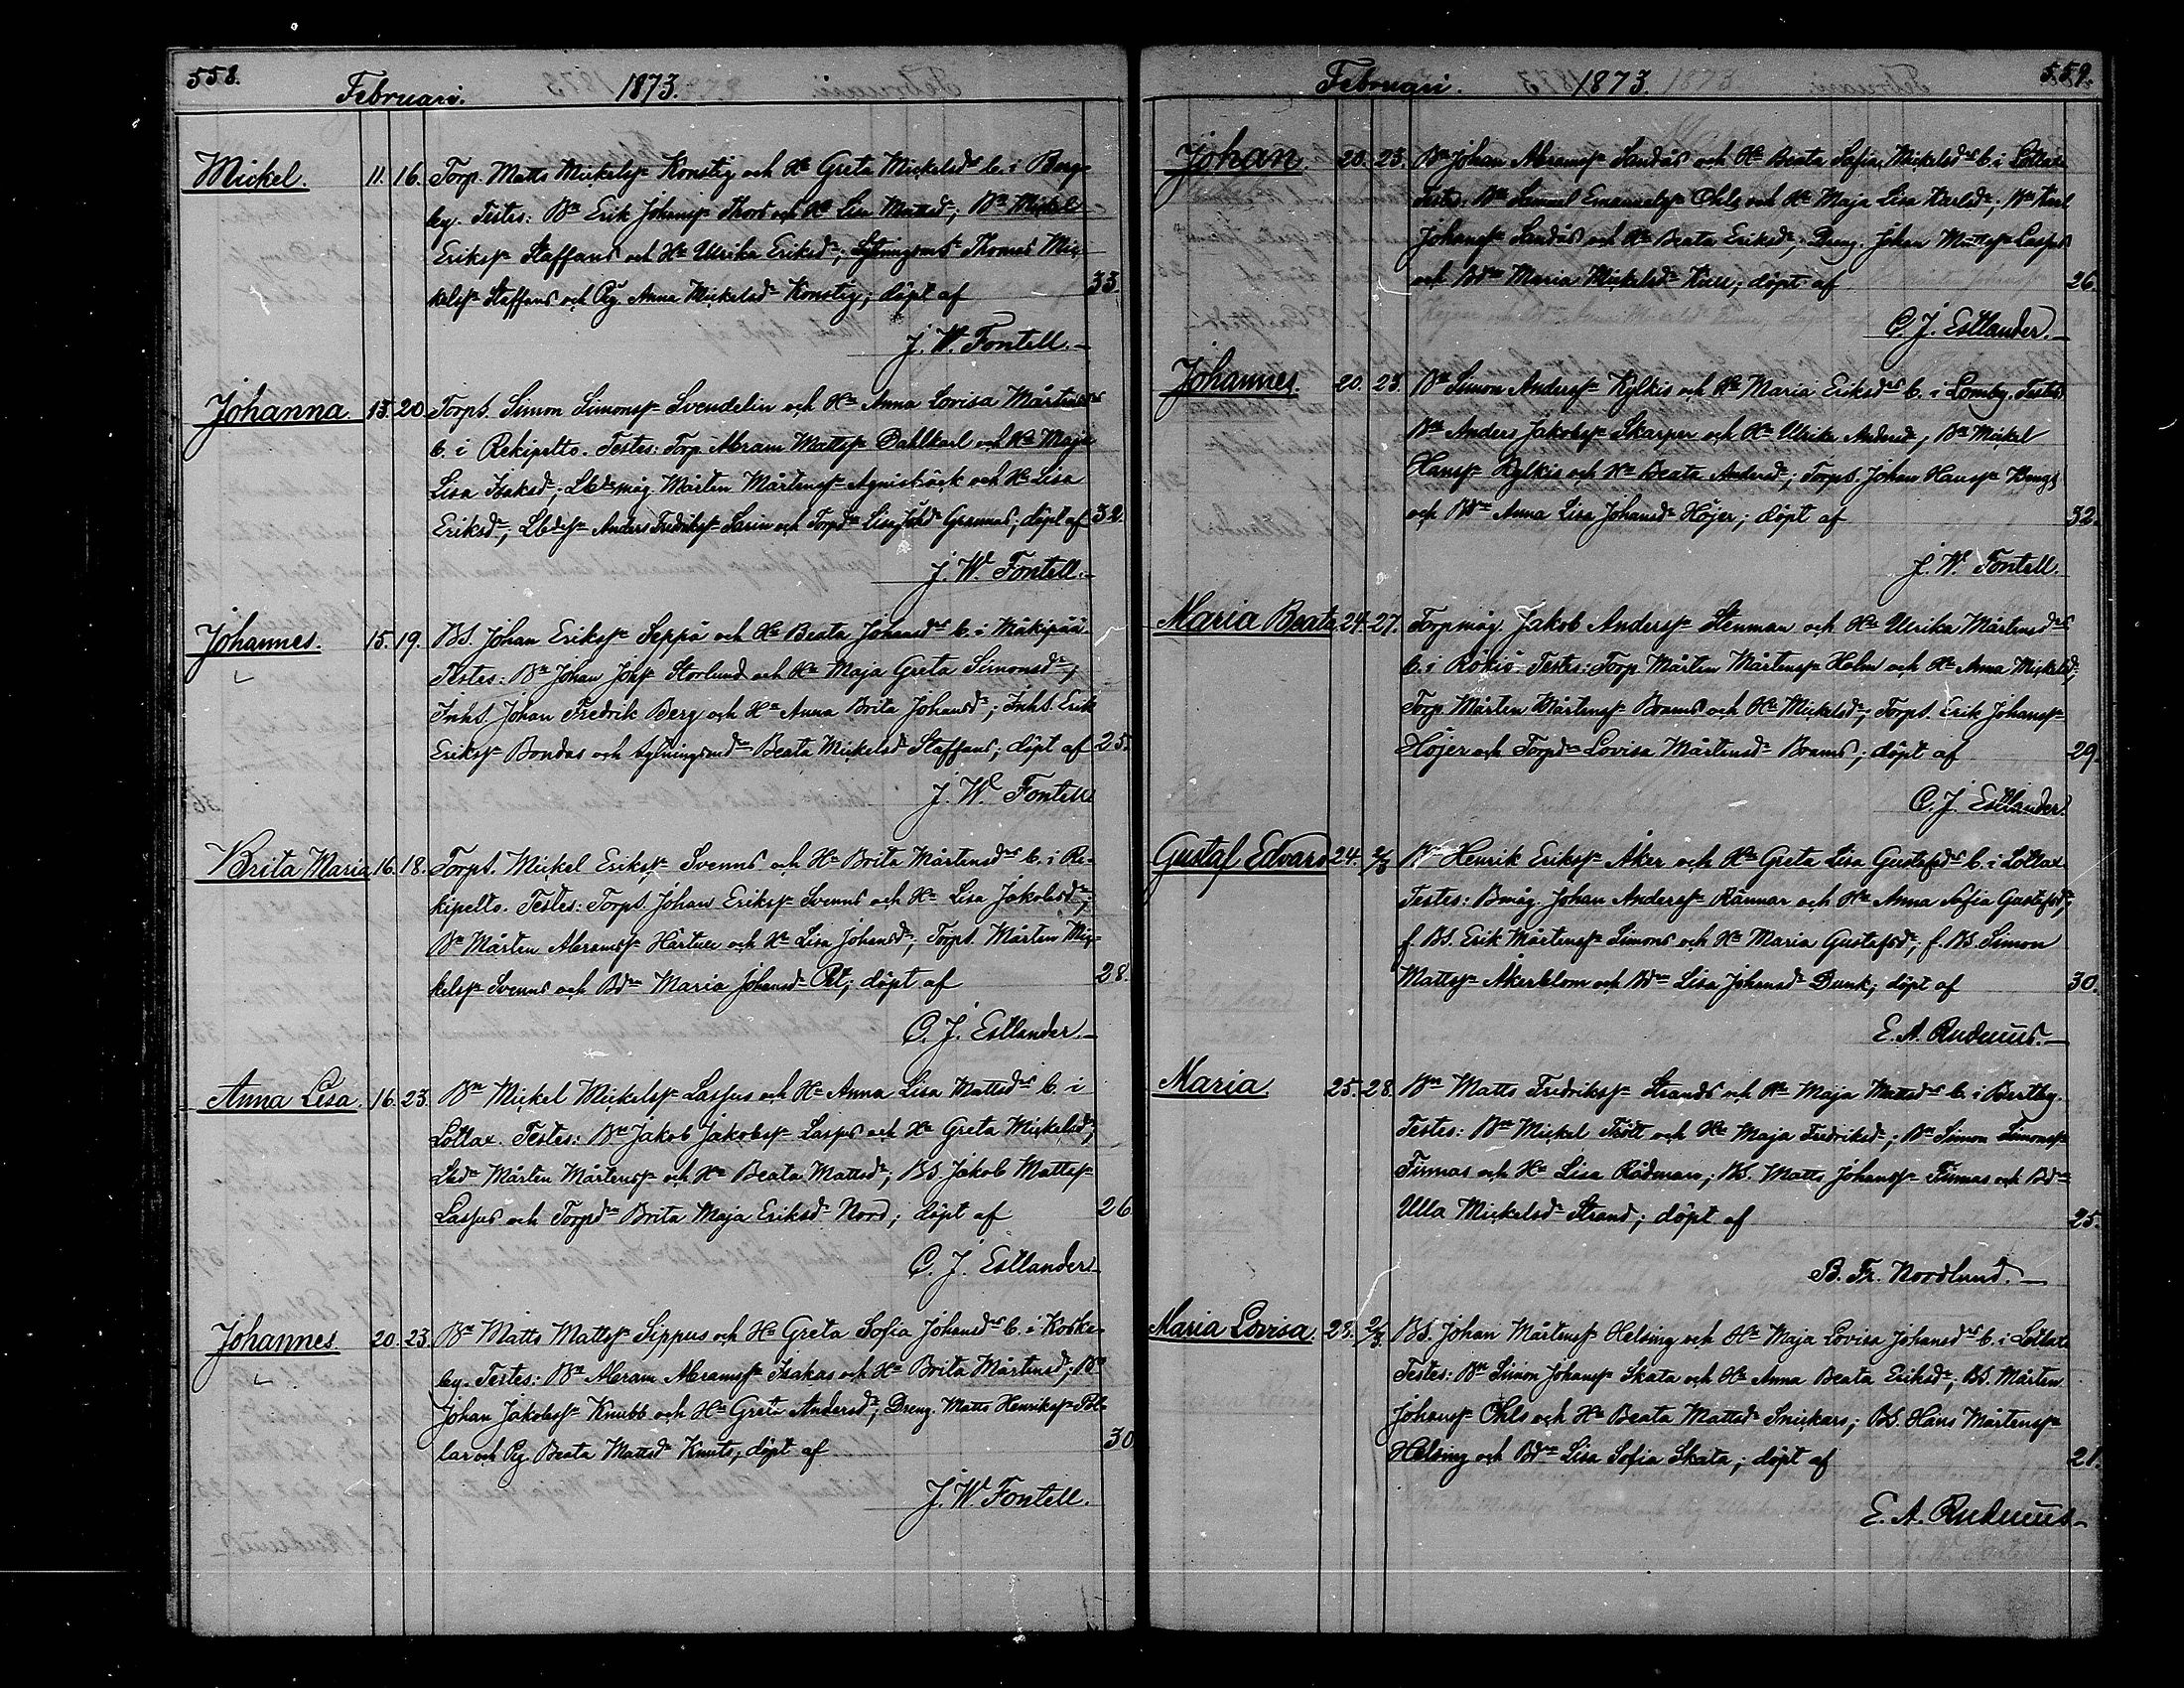 558.
Februari. 1873.
Mickel. 11. 16. Torp. Matts Mickelsn Konstig och Hn Greta Mickelsdr b. i Berg-
by. Testes: Bn Erik Johansn Thors och Hn Lisa Mattsdr; Bn Mickel
Eriksn Staffans och Hn Ulrika Eriksdr; Sytningsms Thomas Mic-
kelsn Staffans och Pig. Anna Mickelsdr Konstig; döpt af 33.
J. W. Fontell.
Johanna. 13. 20. Torps. Simon Simonsn Svendelin och Hn Anna Lovisa Mårtensdr
b. i Rekipelto. Testes: Torp. Abram Mattsn Dahlkarl och Hn Maja
Lisa Isaksdr; Lbdsmåg Mårten Mårtensn Agnisbäck och Hn Lisa
Eriksdr; Lbdsn Anders Fredriksn Sarin och Torpdr Lisa Johdr Grannas; döpt af 32.
J. W. Fontell.
Johannes. 15. 19. BS. Johan Eriksn Seppä och Hn Beata Johansdr b. i Mäkipää.
Testes: Bn Johan Johsn Storlund och Hn Maja Greta Simonsdr;
Inhs. Johan Fredrik Berg och Hn Anna Brita Johansdr; Inhs. Erik
Eriksn Bondas och sytningsmdr Beata Mickelsdr Staffans; döpt af 25.
J. W. Fontell
Brita Maria 16. 18. Torps. Mickel Eriksn Svenns och Hn Brita Mårtensdr b. i Re-
kipelto. Testes: Torps. Johan Eriksn Svenns och Hn Lisa Jakobsdr;
Bn Mårten Abramsn Härtull och Hn Lisa Johansdr; Torps. Mårten Mic-
kelsn Svenns och Bdr Maria Johansdr Pet; döpt af 28.
C. J. Estlander.
Anna Lisa. 16. 23. Bn Mickel Mickelsn Lassus och Hn Anna Lisa Mattsdr b. i
Lottax. Testes: Bn Jakob Jakobsn Laspus och Hn Greta Mickelsdr;
Lbdn Mårten Mårtensn och Hn Beata Mattsdr; BS. Jakob Mattsn
Lassus och Torpdr Brita Maja Eriksdr Nord; döpt af 26
C. J. Estlander
Johannes 20. 23. Bn Matts Mattsn Sippus och Hn Greta Sofia Johansdr b. i Koske-
by. Testes: Bn Abram Abramsn Isakas och Hn Brita Mårtensdr; Bn
Johan Jakobsn Knubb och Hn Greta Andersdr; Dreng. Matts Henriksn Pel-
lar och Pig. Beata Mattsdr Knuts; döpt af 30
J. W. Fontell.
559.
Februari. 1873.
Johan 20. 23. Bn Johan Abramsn Sandås och Hn Beata Sofia Mickelsdr b. i Lottax
Testes: Bn Samuel Emanuelsn Ohls och Hn Maja Lisa Karlsdr; Bn Karl
Johansn Sandås och Hn Beata Eriksdr; Dreng. Johan Mattsn Laspus
och Bdr Maria Mickelsdr Kull; döpt af 26.
C. J. Estlander.
Johannes. 20. 23. Bn Simon Andersn Kylkis och Hn Maria Eriksdr b. i Lomby. Testes:
Bn Anders Jakobsn Skarper och Hn Ulrika Andersdr; Bn Mickel
Hansn Kylkis och Hn Beata Andersdr; Torps. Johan Hansn Bengs
och Bdr Anna Lisa Johansdr Höjer; döpt af 32.
J. W. Fontell.
Maria Beata 24. 27. Torpmåg Jakob Andersn Stenman och Hn Ulrika Mårtensdr
b. i Rökiö. Testes: Torp. Mårten Mårtensn Holm och Hn Anna Mickelsdr;
Torp. Mårten Mårtensn Brams och Hn Mickelsdr; Torps. Erik Johansn
Höjer och Torpdr Lovisa Mårtensdr Brams; döpt af 29.
C. J. Estlander.
Gustaf Edvard 24. 2/3 Bn Henrik Eriksn Åker och Hn Greta Lisa Gustafsdr b. i Lottax
Testes: Bmåg Johan Andersn Rännar och Hn Anna Sofia Gustafsdr;
f. BS. Erik Mårtensn Simons och Hn Maria Gustafsdr; f. BS. Simon
Mattsn Åkerblom och Bdr Lisa Johansdr Dunk; döpt af 30.
E. A. Rudnäus.
Maria 25. 28. Bn Matts Fredriksn Strands och Hn Maja Mattsdr b. i Bertby.
Testes: Bn Mickel Trött och Hn Maja Fredriksdr; Bn Simon Simonsn
Finnas och Hn Lisa Rådman; BS. Matts Johansn Finnas och Bdr
Ulla Mickelsdr Strand; döpt af 25.
B. Fr. Nordlund.
Maria Lovisa. 23. 2/3. BS. Johan Mårtensn Helsing och Hn Maja Lovisa Johansdr b. i Lottax
Testes: Bn Simon Johansn Skata och Hn Anna Beata Eriksdr; BS. Mårten
Johansn Ohls och Hn Beata Mattsdr Snickars; BS. Hans Mårtensn
Helsing och Bdr Lisa Sofia Skata; döpt af 21.
E. A. Rudnäus